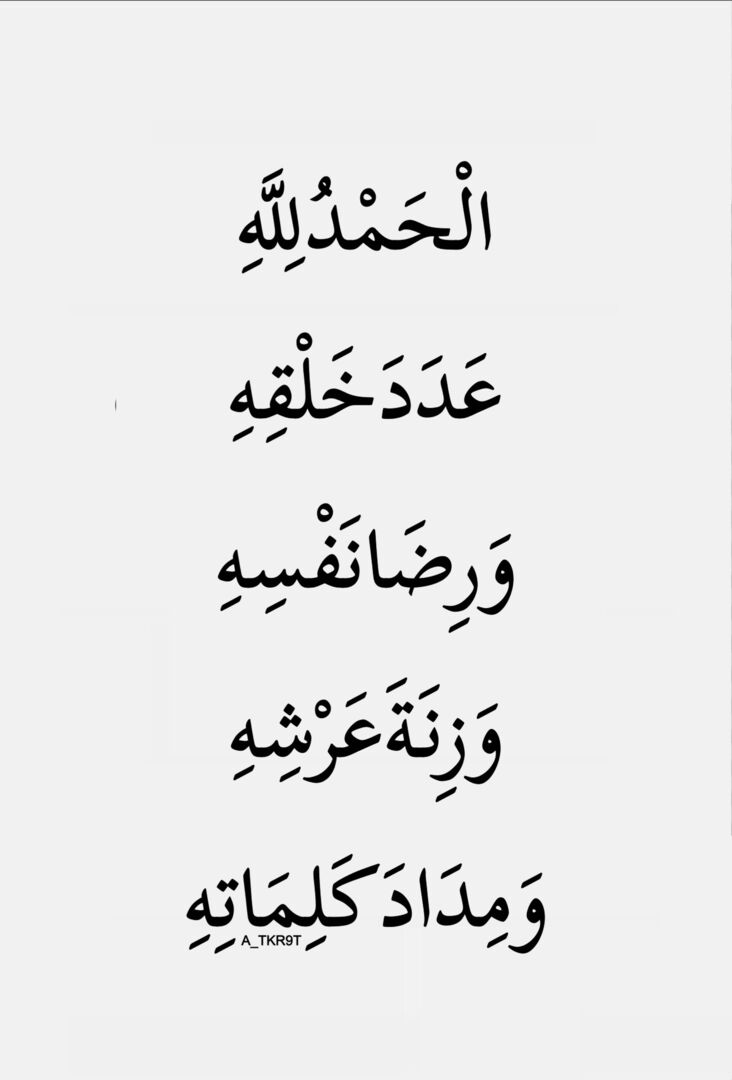 الْحَمْدُ لِلَّهِ
عَدَدَ خَلْقِهِ
وَرِضَا نَفْسِهِ
وَزِنَةَ عَرْشِهِ
وَمِدَادَ كَلِمَاتِهِ
A_TKR9T